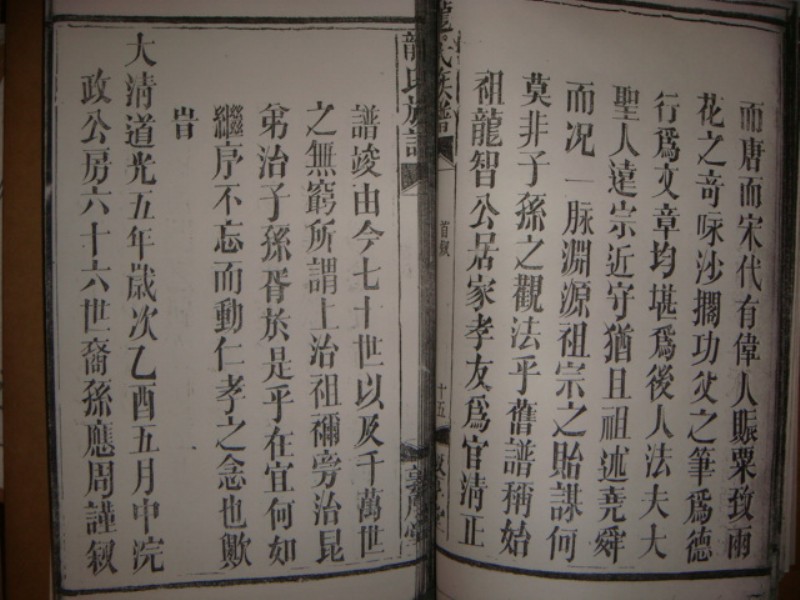 而唐而宋代有偉人賑粟致雨
花之奇咏沙擱功父之筆爲德
行爲文章均堪爲後人法夫大
聖人遠宗近守猶且祖述堯舜
而況一脉淵源祖宗之貽謀何
莫非子孫之觀法乎舊譜稱始
祖龍智公居家孝友爲官清正
龍氏族譜
首叙
十五
龍氏族譜
譜竣由今七十世以及千萬世
之無窮所謂上治祖禰旁治昆
弟治子孫胥於是乎在宜何如
繼序不忘而動仁孝之念也歟
旹
大清道光五年歲次乙酉五月中浣
政公房六十六世裔孫應周謹叙